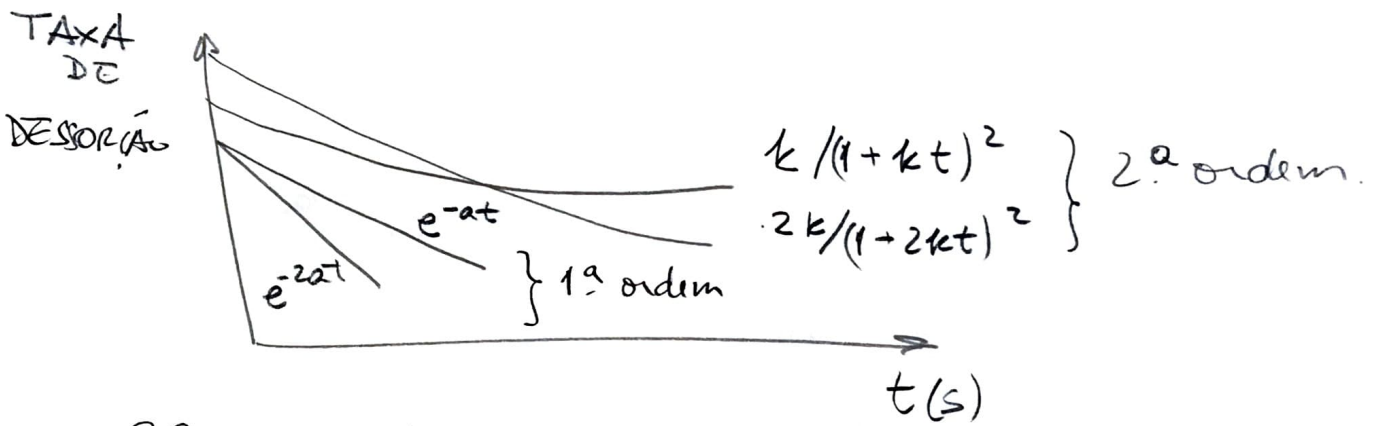 TAXA
DE
DESSORÇÃO
k/(1+kt)²
2k/(1+2kt)²
} 2.ª ordem.
e^-at
e^-2at
} 1ª ordem
t(s)